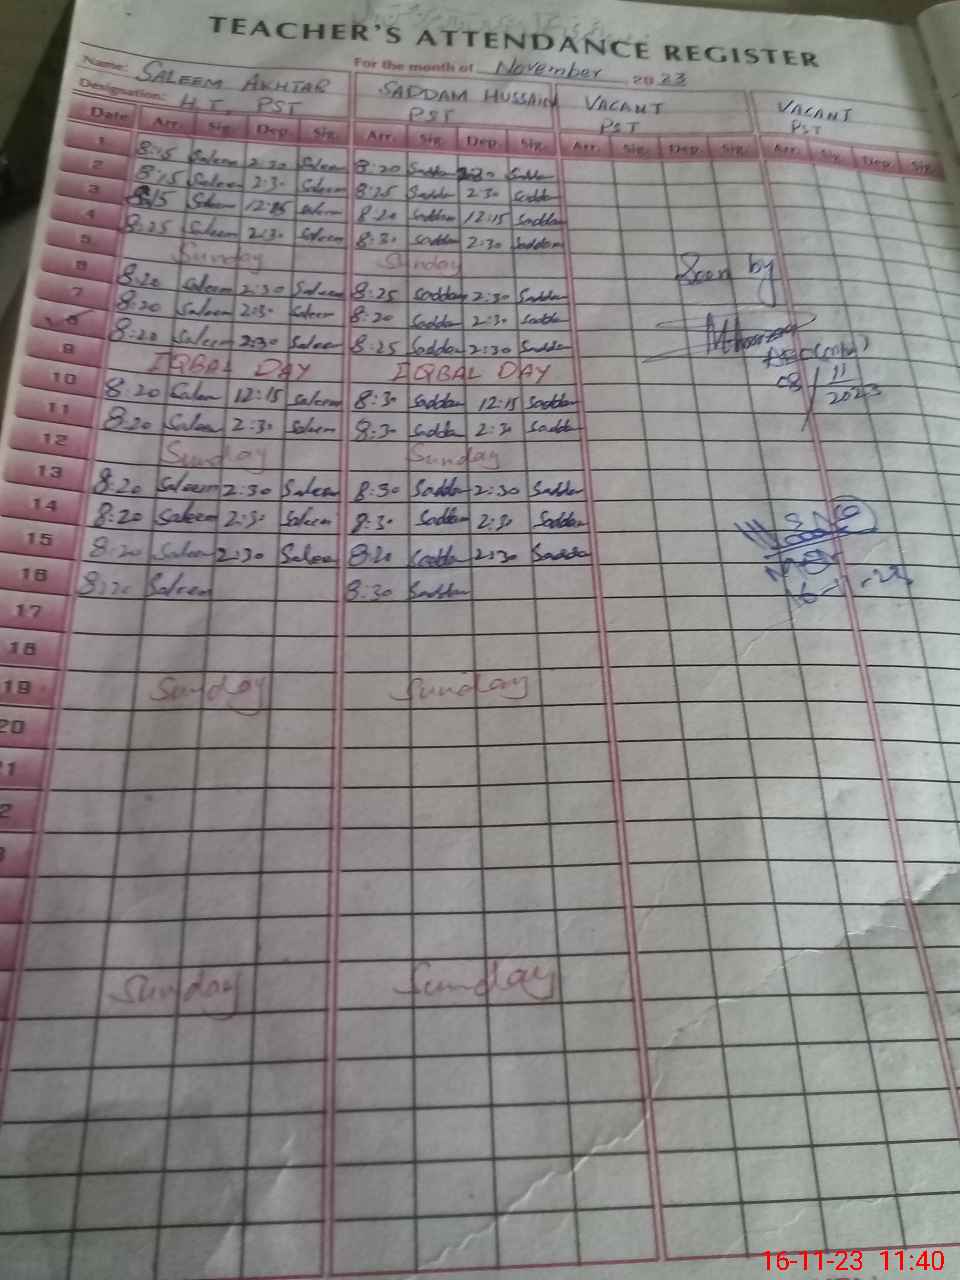 TEACHER'S ATTENDANCE REGISTER
For the month of November 2023
Name: SALEEM AKHTAR SADDAM HUSSAIN VACANT VACANT
Designation: H.T. PST PST PST PST
Date Arr. Sig. Dep. Sig. Arr. Sig. Dep. Sig. Arr. Sig. Dep. Sig. Arr. Sig. Dep. Sig.
1 8:15 Saleem 2:30 Saleem 8:20 Saddam 2:30 Saddam
2 8:15 Saleem 2:30 Saleem 8:25 Saddam 2:30 Saddam
3 8:15 Saleem 12:15 Saleem 8:20 Saddam 12:15 Saddam
4 8:25 Saleem 2:30 Saleem 8:30 Saddam 2:30 Saddam
5 Sunday Sunday
6 8:20 Saleem 2:30 Saleem 8:25 Saddam 2:30 Saddam
Seen by
7 8:20 Saleem 2:30 Saleem 8:20 Saddam 2:30 Saddam
8 8:20 Saleem 2:30 Saleem 8:25 Saddam 2:30 Saddam
9 IQBAL DAY IQBAL DAY
08/11/2023
10 8:20 Saleem 12:15 Saleem 8:30 Saddam 12:15 Saddam
11 8:20 Saleem 2:30 Saleem 8:30 Saddam 2:30 Saddam
12 Sunday Sunday
13 8:20 Saleem 2:30 Saleem 8:30 Saddam 2:30 Saddam
14 8:20 Saleem 2:30 Saleem 8:30 Saddam 2:30 Saddam
15 8:20 Saleem 2:30 Saleem 8:20 Saddam 2:30 Saddam
16 8:20 Saleem 8:30 Saddam
17
18
19 Sunday Sunday
20
1
2
3
Sunday Sunday
16-11-23 11:40